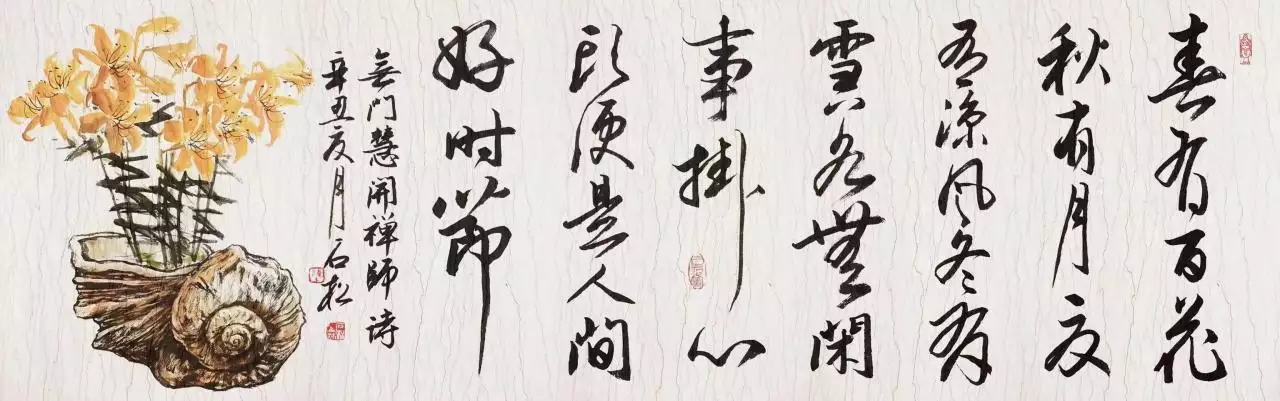 春有百花
秋有月夏
有凉风冬有
雪若無閑
事掛心
头便是人间
好时節
無门慧開禅師诗
辛丑夏月石松